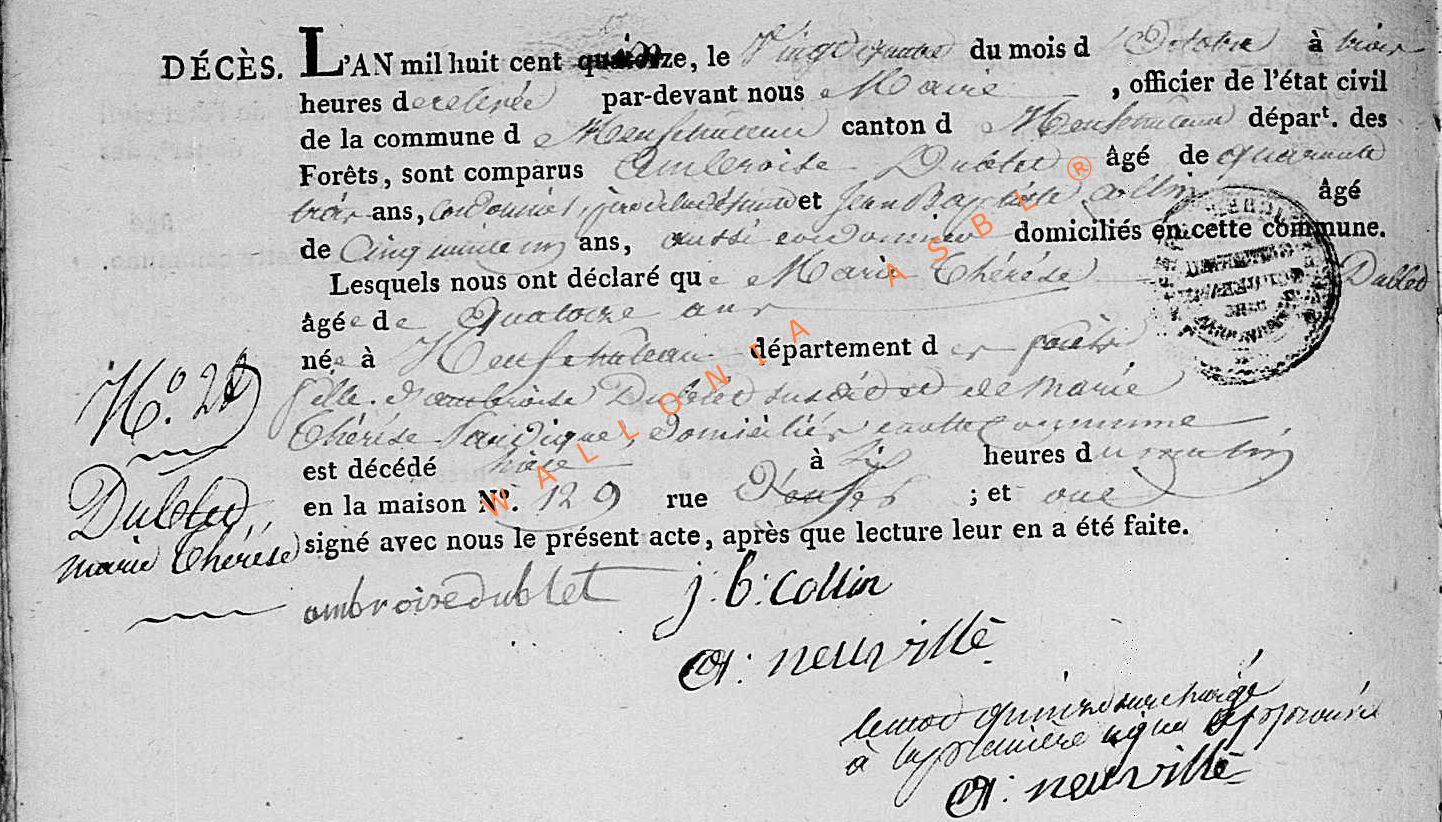 DÉCÈS. L'AN mil huit cent quinze, le Vingt quatre du mois d'Octobre à trois
heures de relevée par-devant nous Maire, officier de l'état civil
de la commune de Neufchateau canton de Neufchateau départ. des
Forêts, sont comparus Ambroise Dublet âgé de quarante
trois ans, cordonnier, père de la défunte et Jean Baptiste Collin âgé
de Cinquante un ans, aussi cordonnier domiciliés en cette commune.
Lesquels nous ont déclaré que Marie Thérése Dublet
âgée de Quatorze ans
née à Neufchateau département des forêts
fille d'ambroise Dublet susdit et de Marie
Thérése domiciliés en cette Commune
est décédé hier à heures du matin
en la maison Nº. 129 rue ; et ont
signé avec nous le présent acte, après que lecture leur en a été faite.
Nº. 28
Dublet,
marie Thérése
ambroise dublet j. b. Collin
neuville
le mot quinze surchargé
à la première ligne approuvé
neuville
WALLONIA ASBL ®